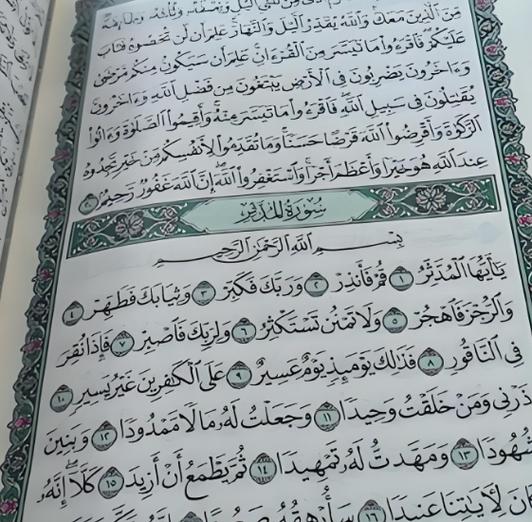 مِّنَ ٱلَّذِينَ مَعَكَۚ وَٱللَّهُ يُقَدِّرُ ٱلَّيْلَ وَٱلنَّهَارَۚ عَلِمَ أَن لَّن تُحْصُوهُ فَتَابَ
عَلَيْكُمْۖ فَٱقْرَءُوا۟ مَا تَيَسَّرَ مِنَ ٱلْقُرْءَانِۚ عَلِمَ أَن سَيَكُونُ مِنكُم مَّرْضَىٰ
وَءَاخَرُونَ يَضْرِبُونَ فِى ٱلْأَرْضِ يَبْتَغُونَ مِن فَضْلِ ٱللَّهِۙ وَءَاخَرُونَ
يُقَٰتِلُونَ فِى سَبِيلِ ٱللَّهِۖ فَٱقْرَءُوا۟ مَا تَيَسَّرَ مِنْهُۚ وَأَقِيمُوا۟ ٱلصَّلَوٰةَ وَءَاتُوا۟
ٱلزَّكَوٰةَ وَأَقْرِضُوا۟ ٱللَّهَ قَرْضًا حَسَنًاۚ وَمَا تُقَدِّمُوا۟ لِأَنفُسِكُم مِّنْ خَيْرٍ تَجِدُوهُ
عِندَ ٱللَّهِ هُوَ خَيْرًا وَأَعْظَمَ أَجْرًاۚ وَٱسْتَغْفِرُوا۟ ٱللَّهَۖ إِنَّ ٱللَّهَ غَفُورٌ رَّحِيمٌۢ
سُورَةُ المُدَّثِّرِ
بِسْمِ ٱللَّهِ ٱلرَّحْمَٰنِ ٱلرَّحِيمِ
يَٰٓأَيُّهَا ٱلْمُدَّثِّرُ ١ قُمْ فَأَنذِرْ ٢ وَرَبَّكَ فَكَبِّرْ ٣ وَثِيَابَكَ فَطَهِّرْ ٤
وَٱلرُّجْزَ فَٱهْجُرْ ٥ وَلَا تَمْنُن تَسْتَكْثِرُ ٦ وَلِرَبِّكَ فَٱصْبِرْ ٧ فَإِذَا نُقِرَ
فِى ٱلنَّاقُورِ ٨ فَذَٰلِكَ يَوْمَئِذٍ يَوْمٌ عَسِيرٌ ٩ عَلَى ٱلْكَٰفِرِينَ غَيْرُ يَسِيرٍ ١٠
ذَرْنِى وَمَنْ خَلَقْتُ وَحِيدًا ١١ وَجَعَلْتُ لَهُۥ مَالًا مَّمْدُودًا ١٢ وَبَنِينَ
شُهُودًا ١٣ وَمَهَّدتُّ لَهُۥ تَمْهِيدًا ١٤ ثُمَّ يَطْمَعُ أَنْ أَزِيدَ ١٥ كَلَّآۖ إِنَّهُۥ
كَانَ لِءَايَٰتِنَا عَنِيدًا ١٦ سَأُرْهِقُهُۥ صَعُودًا